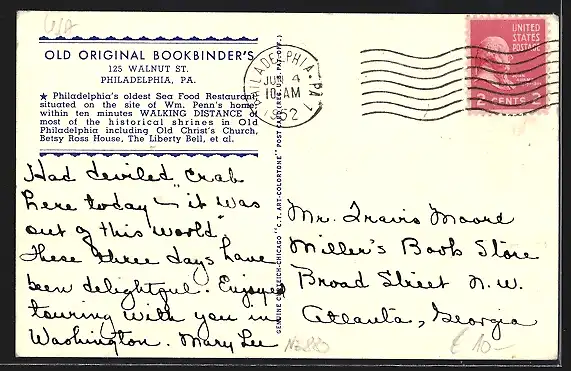 OLD ORIGINAL BOOKBINDER'S
125 WALNUT ST.
PHILADELPHIA, PA.
★ Philadelphia's oldest Sea Food Restaurant
situated on the site of Wm. Penn's home
within ten minutes WALKING DISTANCE of
most of the historical shrines in Old
Philadelphia including Old Christ's Church,
Betsy Ross House, The Liberty Bell, et al.
Had deviled crab
here today — "it was
out of this world".
These three days have
been delightful. Enjoyed
touring with you in
Washington. Mary Lee
GENUINE CURTEICH-CHICAGO "C.T. ART-COLORTONE" POST CARD (REG. U.S. PAT. OFF.)
PHILADELPHIA, PA.
4
10 AM
1952
UNITED
STATES
POSTAGE
2 CENTS 2
Mr. Travis Moore
Miller's Book Store
Broad Street N.W.
Atlanta, Georgia
€ 10-